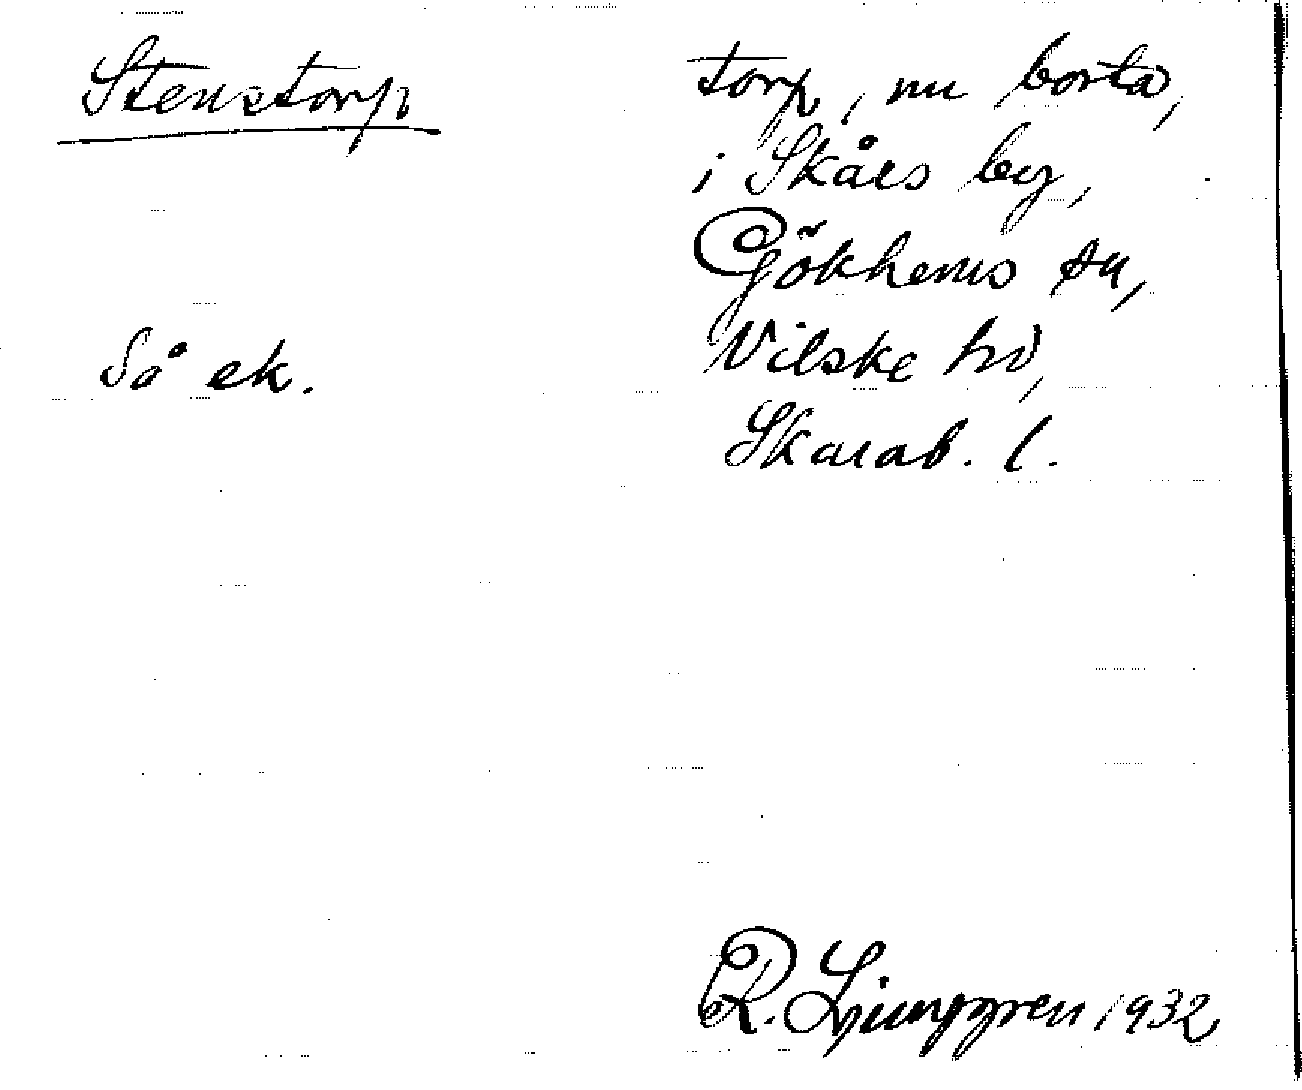 Stenstorp
Så ek.
torp, nu borta,
i Skårs by,
Gökhems sn,
Vilske hd,
Skarab. l.
R. Ljunggren 1932